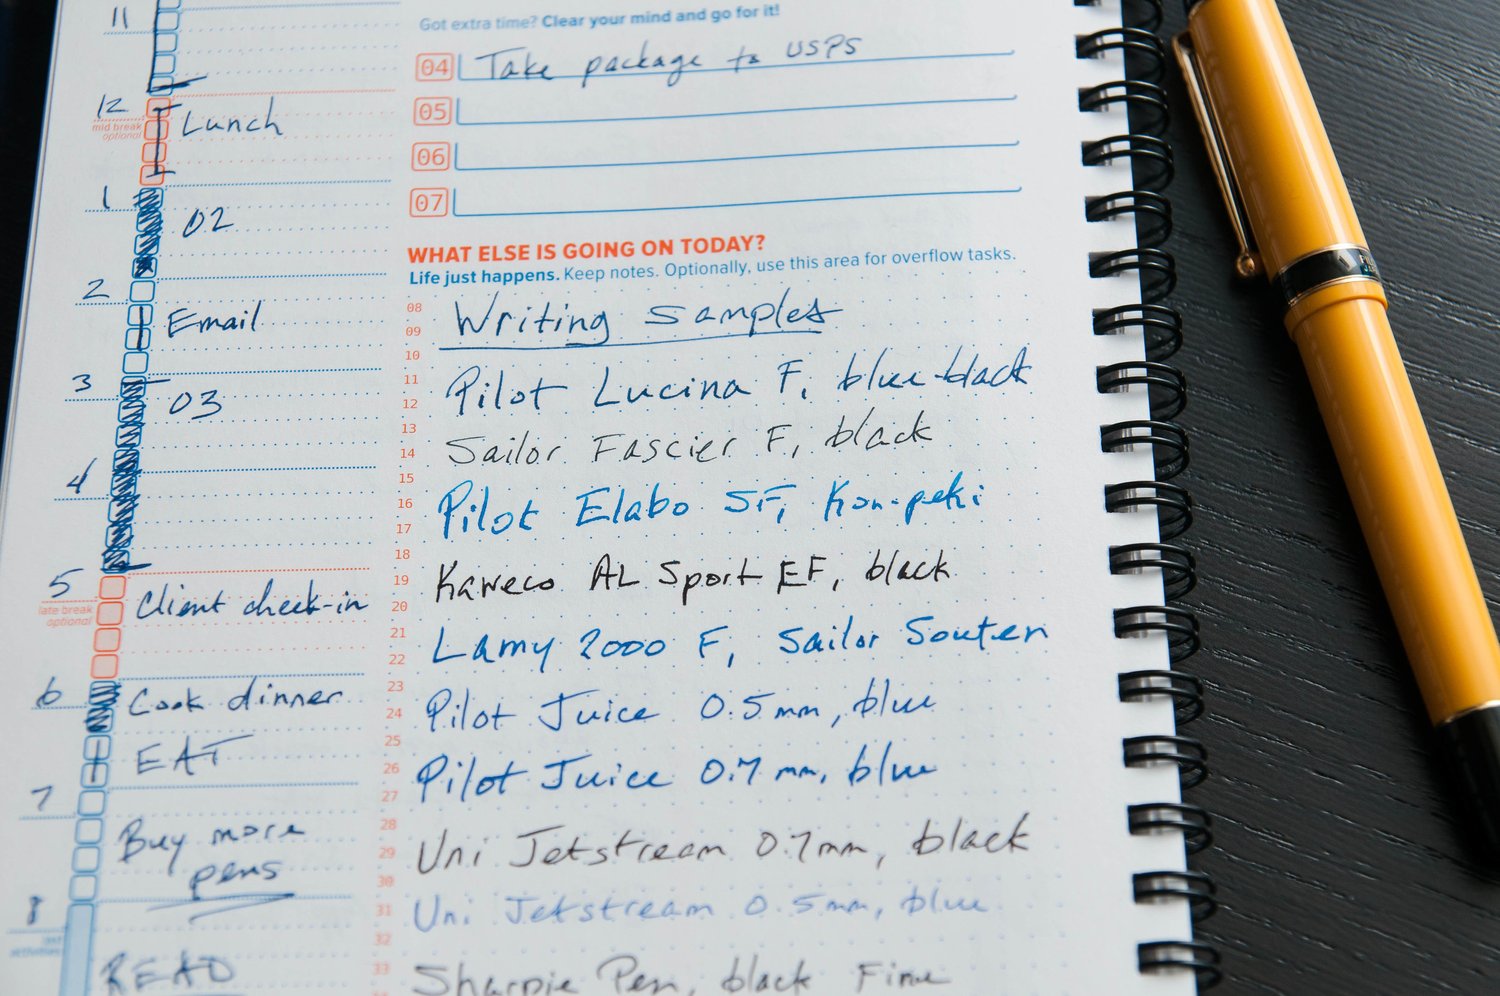 11
12
mid break
optional
Lunch
1
02
2
Email
3
03
4
5
late break
optional
Client check-in
6
Cook dinner
EAT
7
Buy more
pens
8
activities
READ
Got extra time? Clear your mind and go for it!
04 Take package to USPS
05
06
07
WHAT ELSE IS GOING ON TODAY?
Life just happens. Keep notes. Optionally, use this area for overflow tasks.
08
09 Writing Samples
10
11 Pilot Lucina F, blue-black
12
13
14 Sailor Fascier F, black
15
16 Pilot Elabo SF, Kon-peki
17
18
19 Kaweco AL Sport EF, black
20
21 Lamy 2000 F, Sailor Souten
22
23
24 Pilot Juice 0.5 mm, blue
25
26 Pilot Juice 0.7 mm, blue
27
28
29 Uni Jetstream 0.7mm, black
30
31 Uni Jetstream 0.5mm, blue
32
33 Sharpie Pen, black Fine